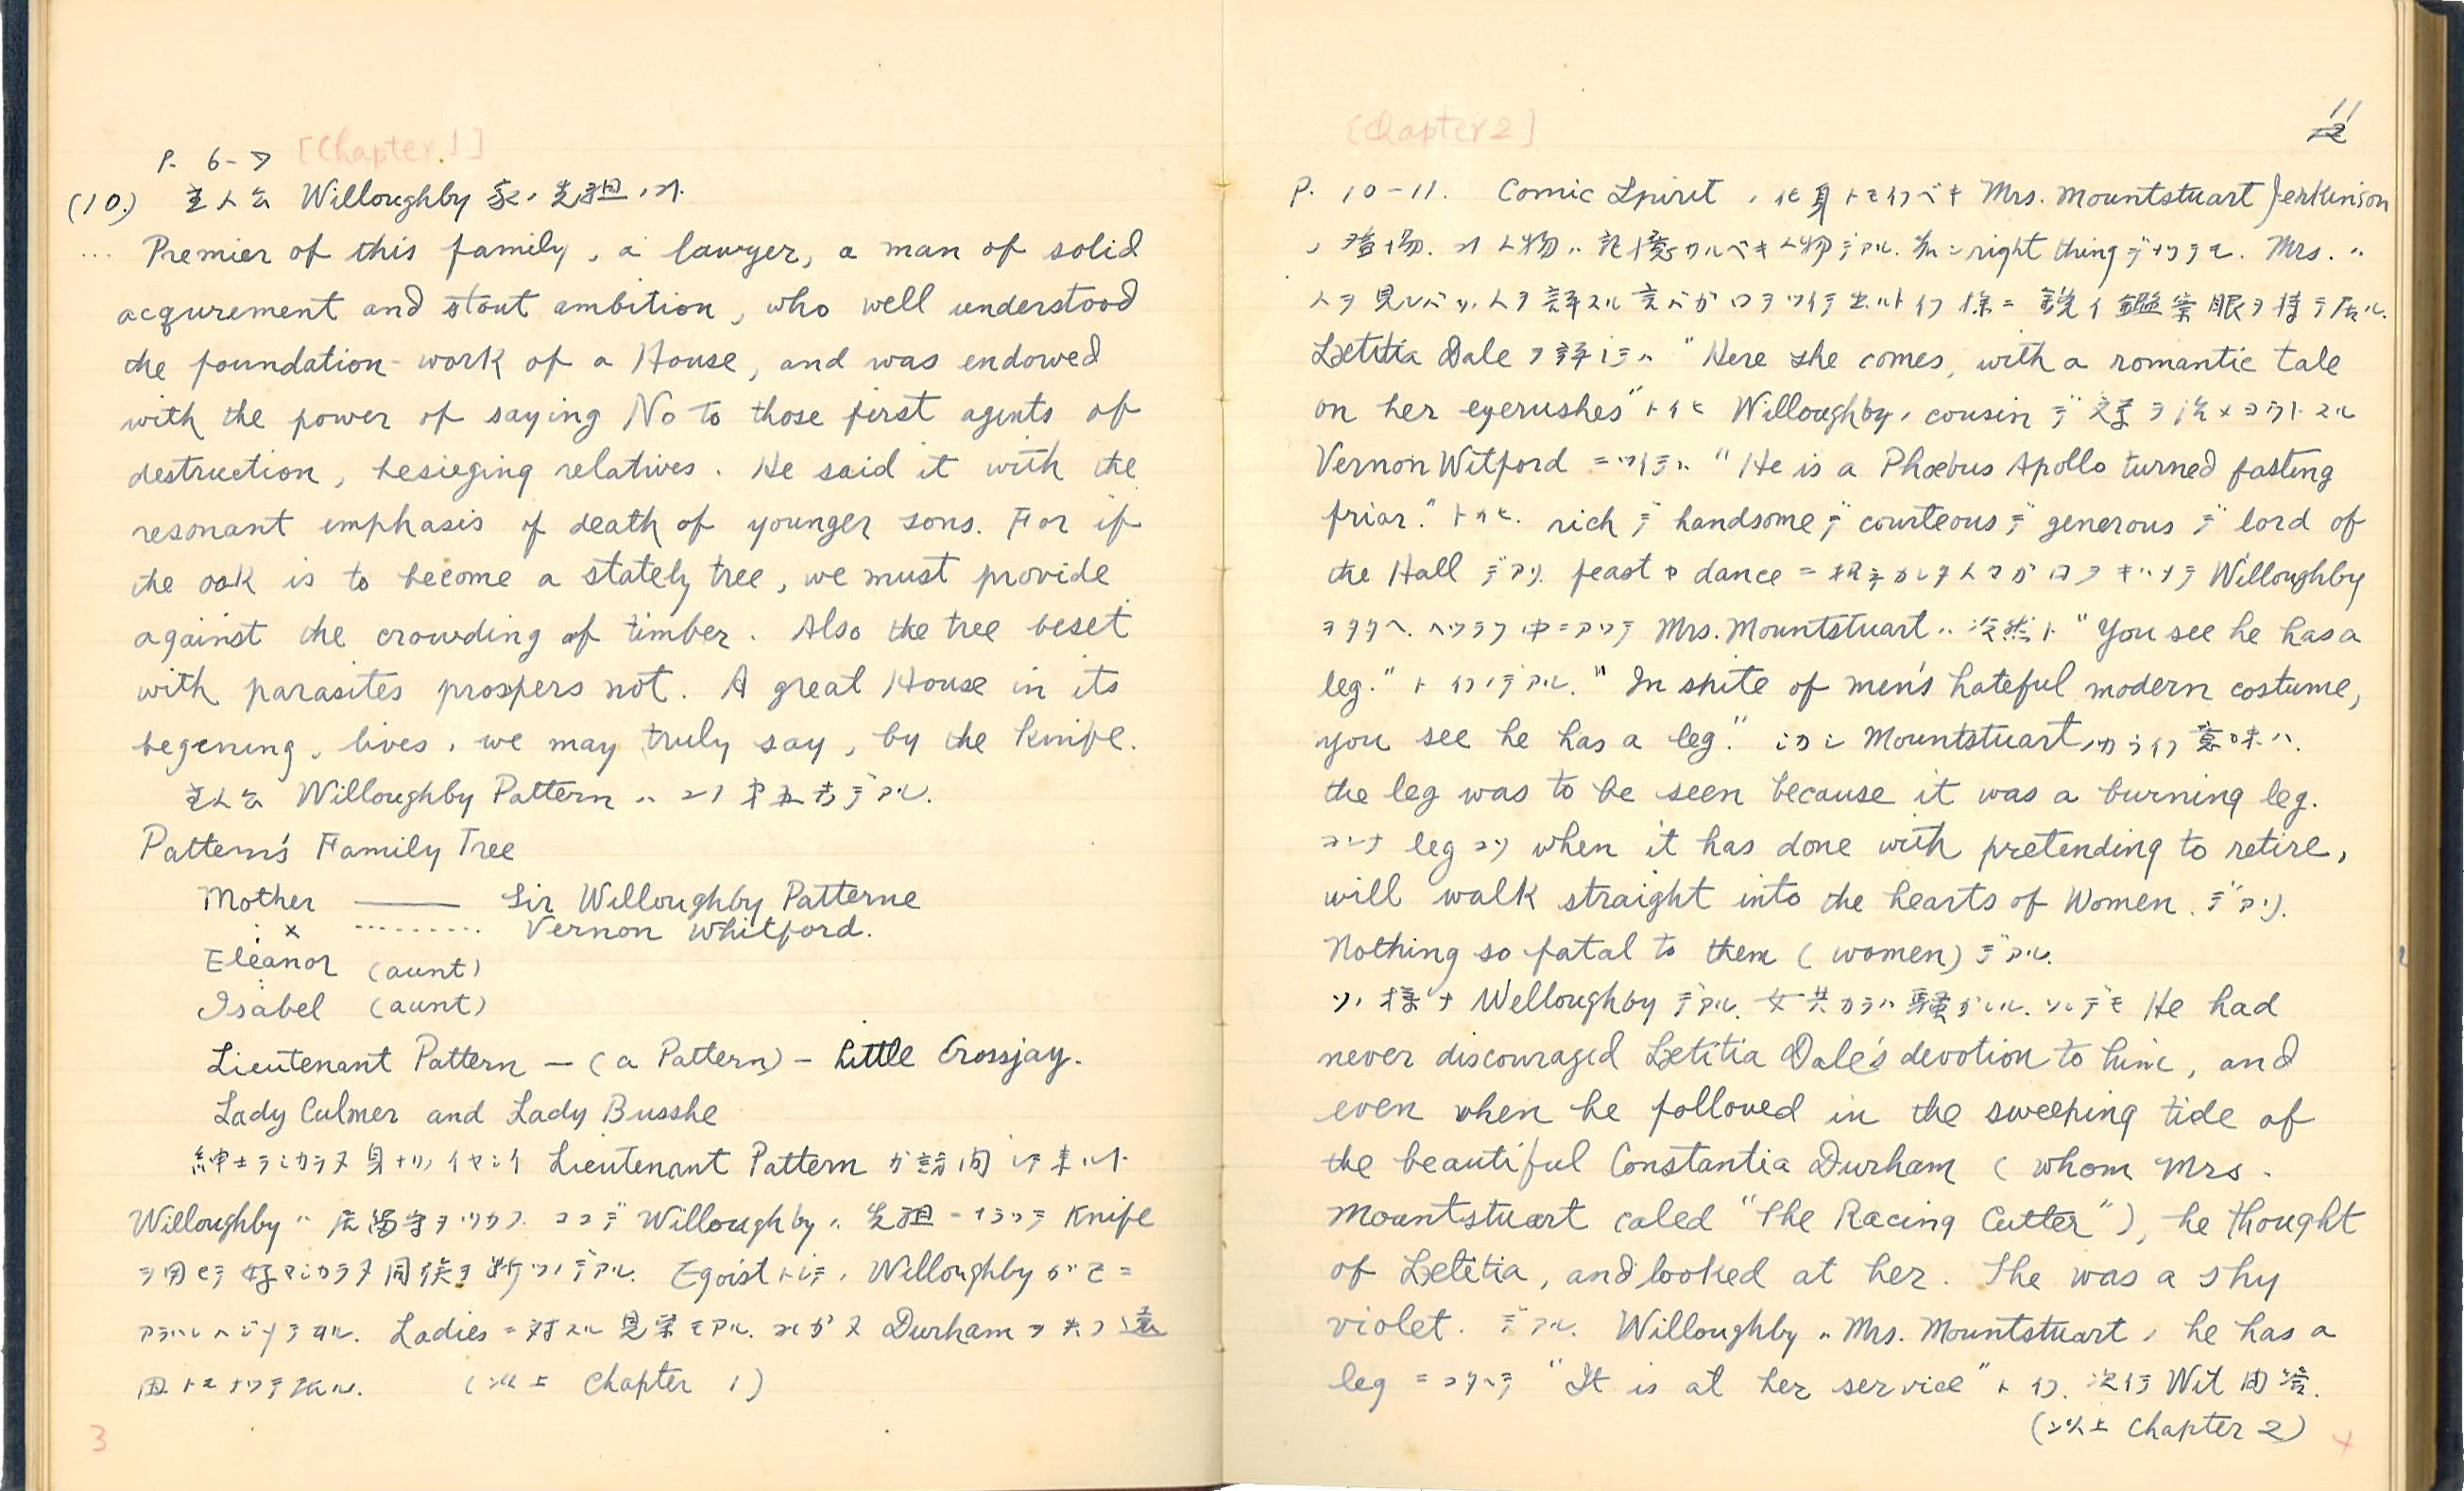 [Chapter 1]
P. 6-7
(10.) 主人公 Willoughby 家ノ先祖ノコト
... Premier of this family, a lawyer, a man of solid
acqurement and stout ambition, who well understood
the foundation-work of a House, and was endowed
with the power of saying No to those first agents of
destruction, besieging relatives. He said it with the
resonant emphasis of death of younger sons. For if
the oak is to become a stately tree, we must provide
against the crowding of timber. Also the tree beset
with parasites prospers not. A great House in its
begening, lives, we may truly say, by the knife.
主人公 Willoughby Pattern ハ コノ 第五代デアル.
Pattern's Family Tree
Mother —— Sir Willoughby Patterne
x ........ Vernon Whitford.
Eleanor (aunt)
Isabel (aunt)
Lieutenant Pattern — (a Pattern) — Little Crossjay.
Lady Culmer and Lady Busshe
紳士ラシカラヌ身ナリノイヤシイ Lieutenant Pattern ガ訪問シテ来ルト
Willoughby ハ 居留守ヲツカフ. ココデ Willoughby ハ 先祖ニナラッテ Knife
ヲ用ヒテ好マシカラヌ同族ヲ断ツノデアル. Egoist トシテノ Willoughby ガモニ
アラハレハジメテヰル. Ladies ニ対スル見栄モアル. コレガ又 Durham ヲ失フ遠
因トモナッテヰル. (以上 Chapter 1)
3
[Chapter 2]
11
P. 10-11. Comic Spirit ノ化身トモイフベキ Mrs. Mountstuart Jenkinson
ノ登場. コノ人物ハ記憶サルベキ人物デアル. 為ニ right thing デナクテモ. Mrs. ハ
人ヲ見レバソノ人ヲ評スル言バガ口ヲツイテ出ルトイフ様ニ鋭イ鑑察眼ヲ持テ居ル.
Lætitia Dale ヲ評シテハ "Here she comes, with a romantic tale
on her eyerushes" トイヒ Willoughby ノ cousin デ 文学ヲ治メヨウトスル
Vernon Witford ニツイテハ "He is a Phœbus Apollo turned fasting
friar." トイヒ. rich デ handsome デ courteous デ generous デ lord of
the Hall デアリ. feast ヤ dance ニ招ネカレタ人々ガ口ヲキハメテ Willoughby
ヲタタヘ. ヘツラフ中ニアッテ Mrs. Mountstuart ハ 冷然ト "You see he has a
leg." ト イフノデアル. "In spite of men's hateful modern costume,
you see he has a leg." シカシ Mountstuart ノカライフ意味ハ.
the leg was to be seen because it was a burning leg.
コンナ leg コソ when it has done with pretending to retire,
will walk straight into the hearts of Women. デアリ.
Nothing so fatal to them (women) デアル.
ソノ様ナ Welloughby デアル. 女共カラハ騒ガレル. ソレデモ He had
never discouraged Lætitia Dale's devotion to him, and
even when he followed in the sweeping tide of
the beautiful Constantia Durham (whom Mrs.
Mountstuart caled "The Racing Cutter"), he thought
of Lætitia, and looked at her. She was a shy
violet. デアル. Willoughby ハ Mrs. Mountstuart ノ he has a
leg ニコタヘテ "It is at her service" ト イフ. 次イデ Wit 問答.
(以上 Chapter 2)
4